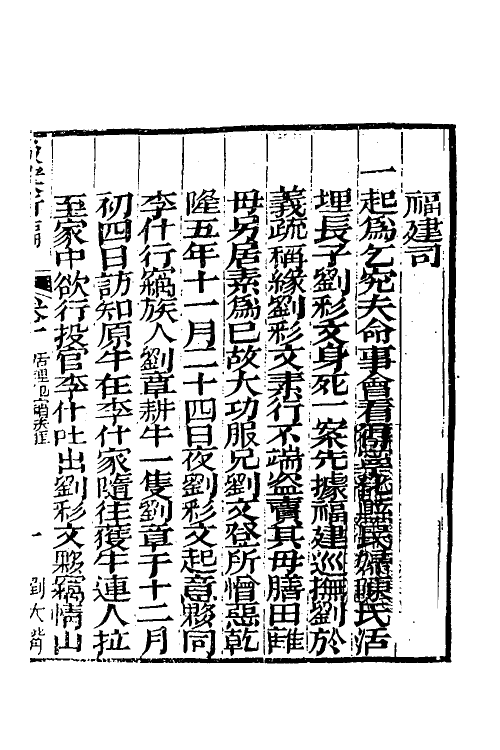 福建司
一起為乞究夫命事會看得
民婦陳氏活
埋長子劉彩文身死一案先據福建巡撫劉於
義疏稱緣劉彩文素行不端盜賣其母膳田雖
母另居素為已故大功服兄劉文登所憎惡乾
隆五年十一月二十四日夜劉彩文起意夥同
李什行竊族人劉章耕牛一隻劉章于十二月
初四日訪知原牛在李什家隨往獲牛連人拉
至家中欲行投官李什吐出劉彩文夥竊情山
新編
卷一
活埋
一
劉大嘴